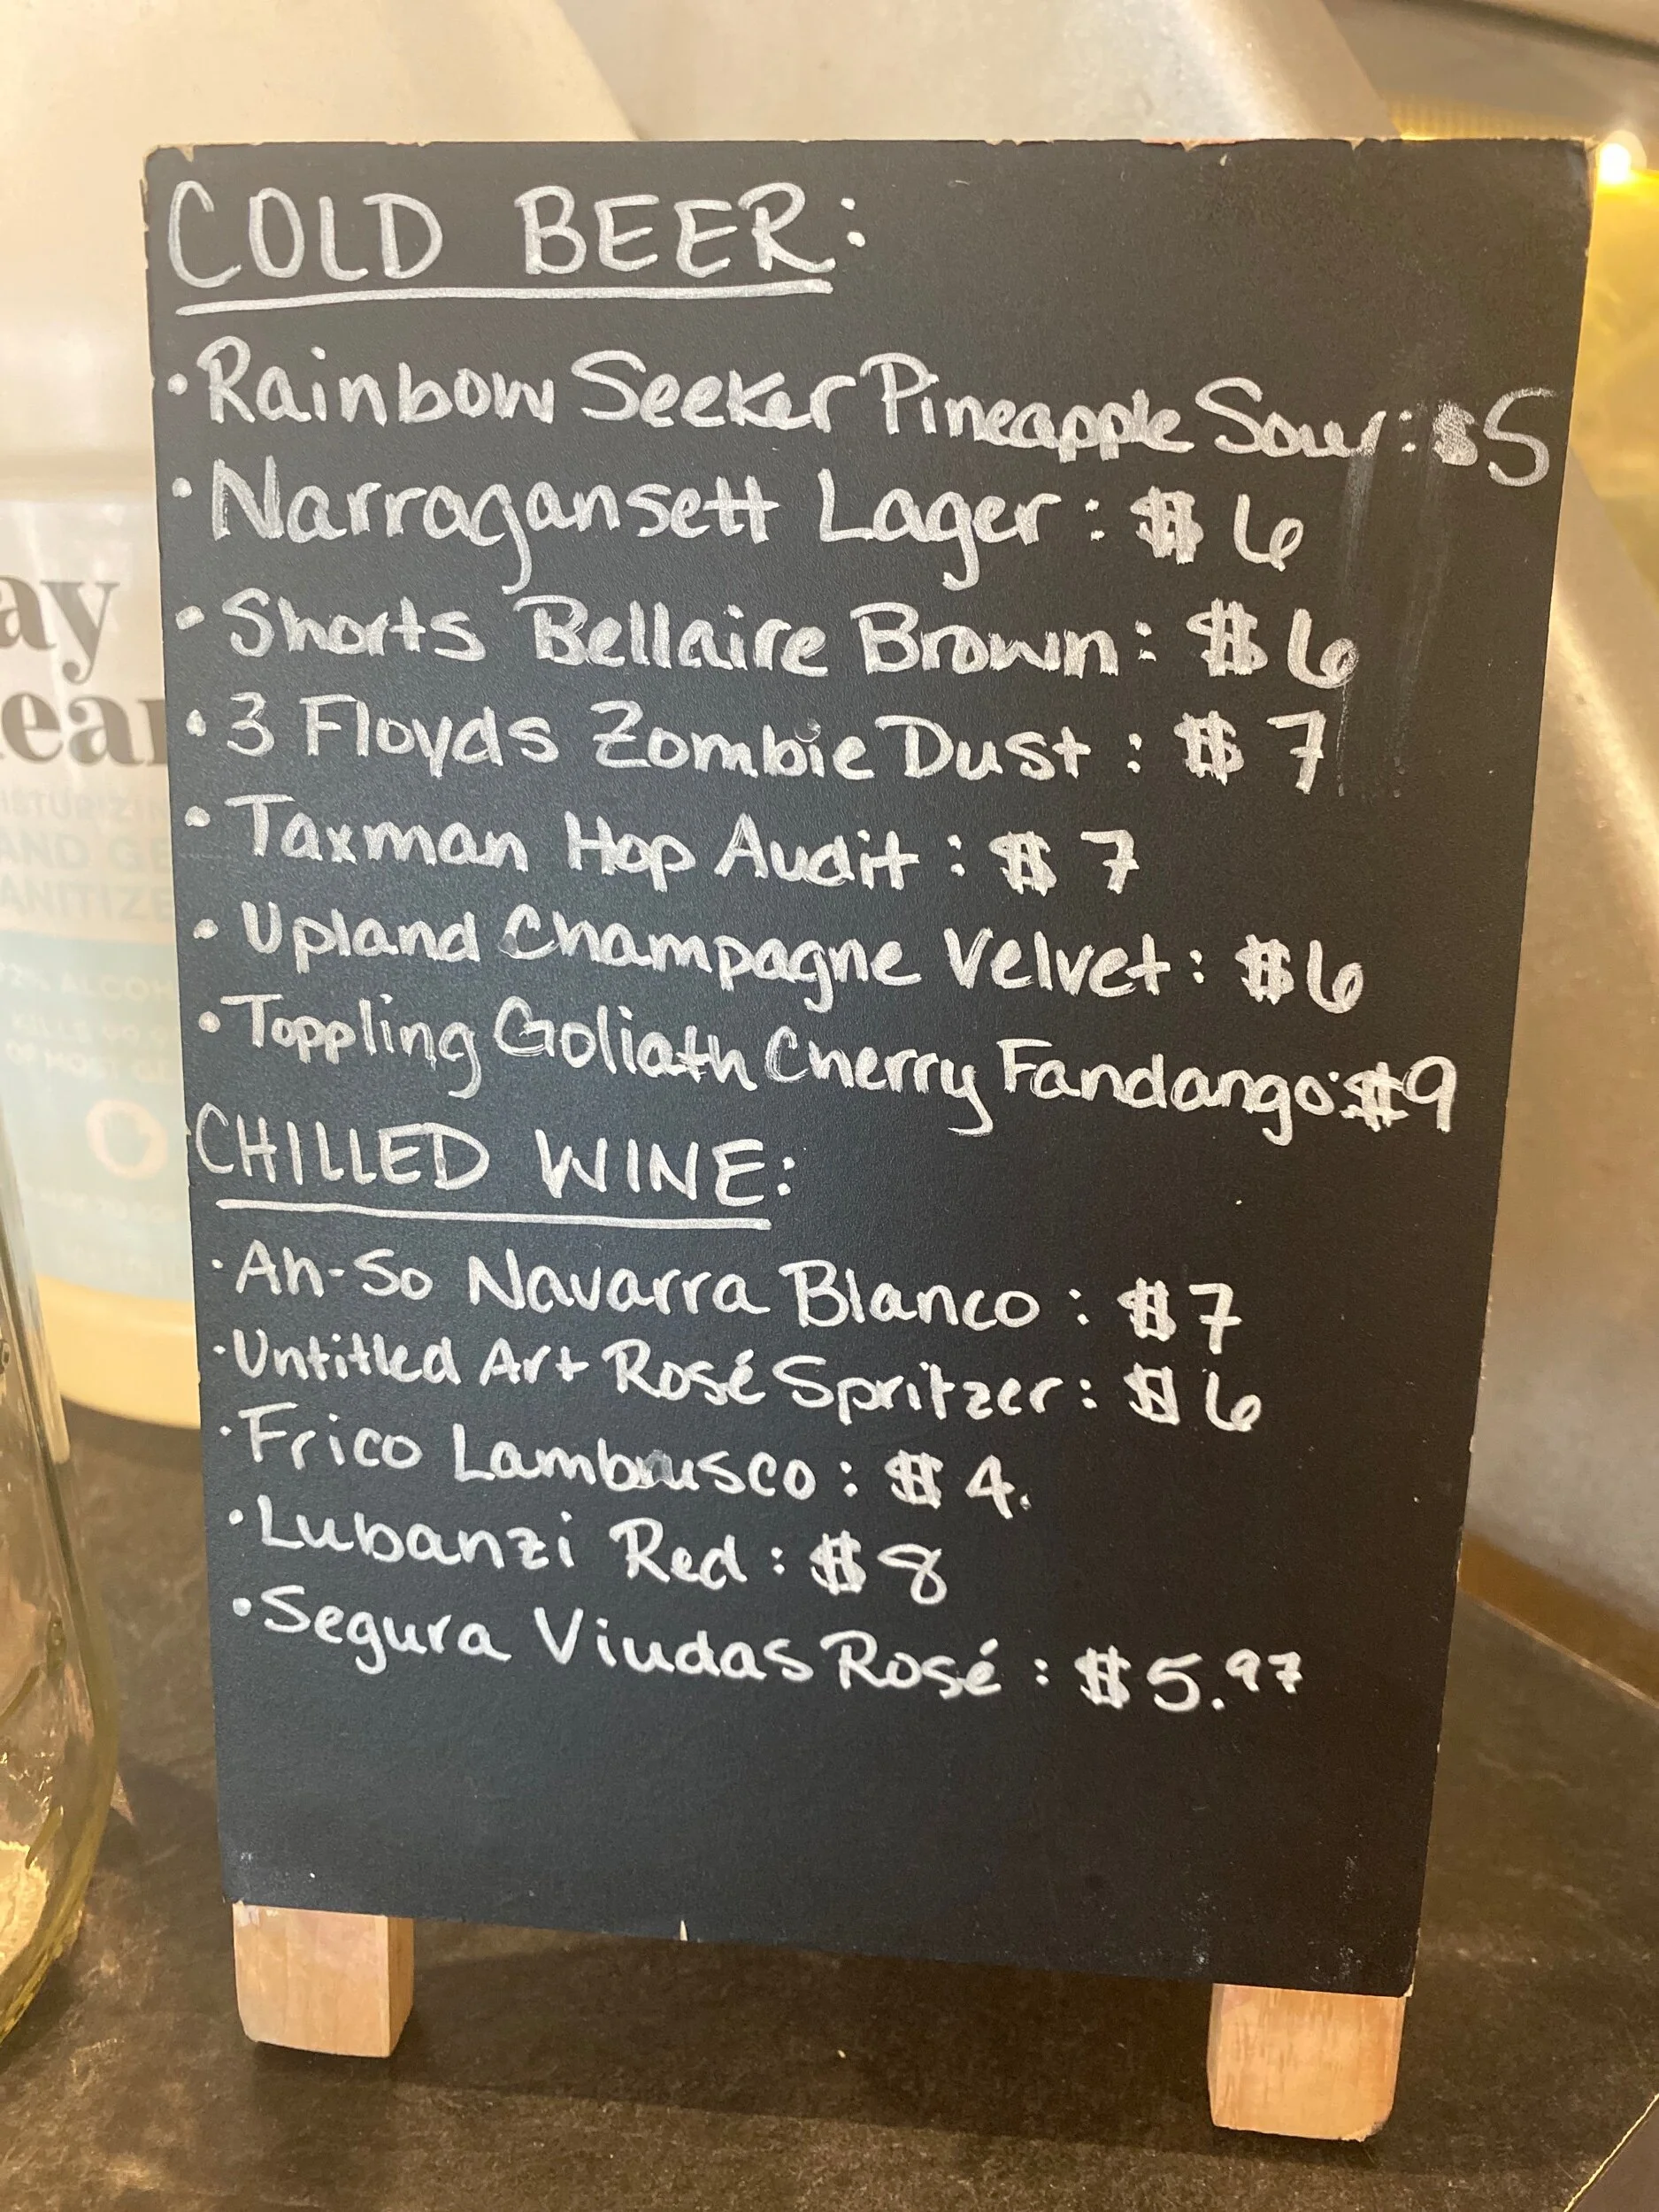 COLD BEER:
• Rainbow Seeker Pineapple Sour: $5
• Narragansett Lager: $6
• Shorts Bellaire Brown: $6
• 3 Floyds Zombie Dust: $7
• Taxman Hop Audit: $7
• Upland Champagne Velvet: $6
• Toppling Goliath Cherry Fandango: $9
CHILLED WINE:
• Ah-So Navarra Blanco: $7
• Untitled Art Rosé Spritzer: $6
• Frico Lambrusco: $4.
• Lubanzi Red: $8
• Segura Viudas Rosé: $5.97
ay
ear